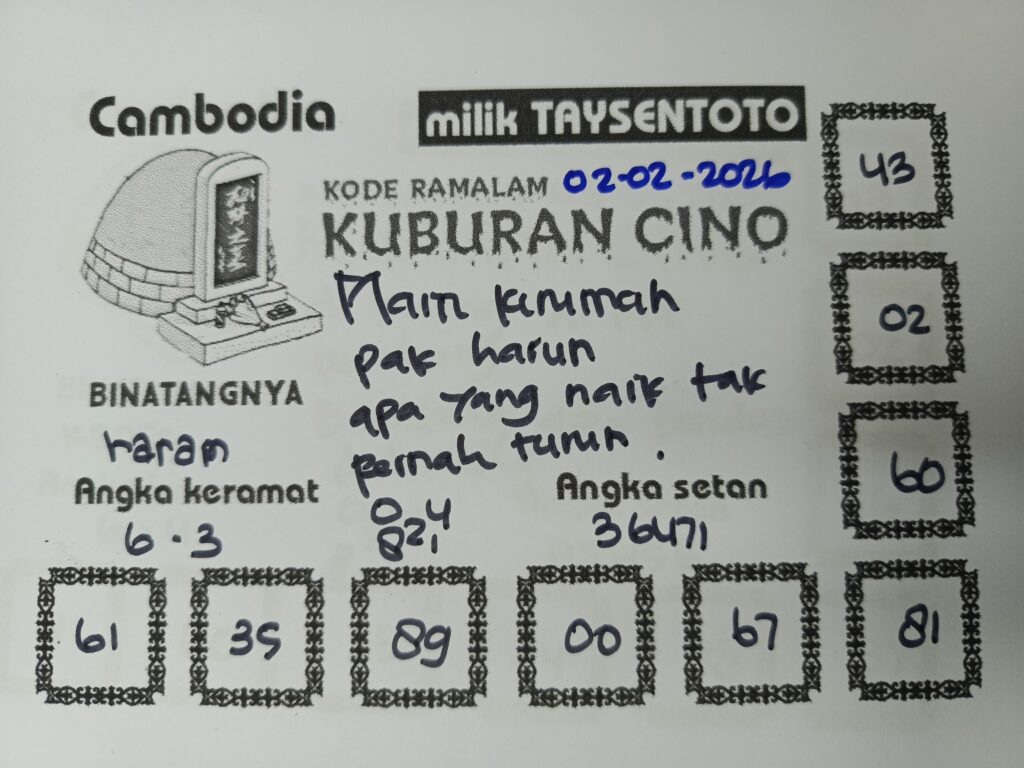 Cambodia
milik TAYSENTOTO
KODE RAMALAM 02-02-2026
KUBURAN CINO
Main kirumah
pak harun
apa yang naik tak
pernah turun.
BINATANGNYA
haram
Angka keramat
6.3
0 4
8 2 1
Angka setan
36471
43
02
60
61
35
89
00
67
81